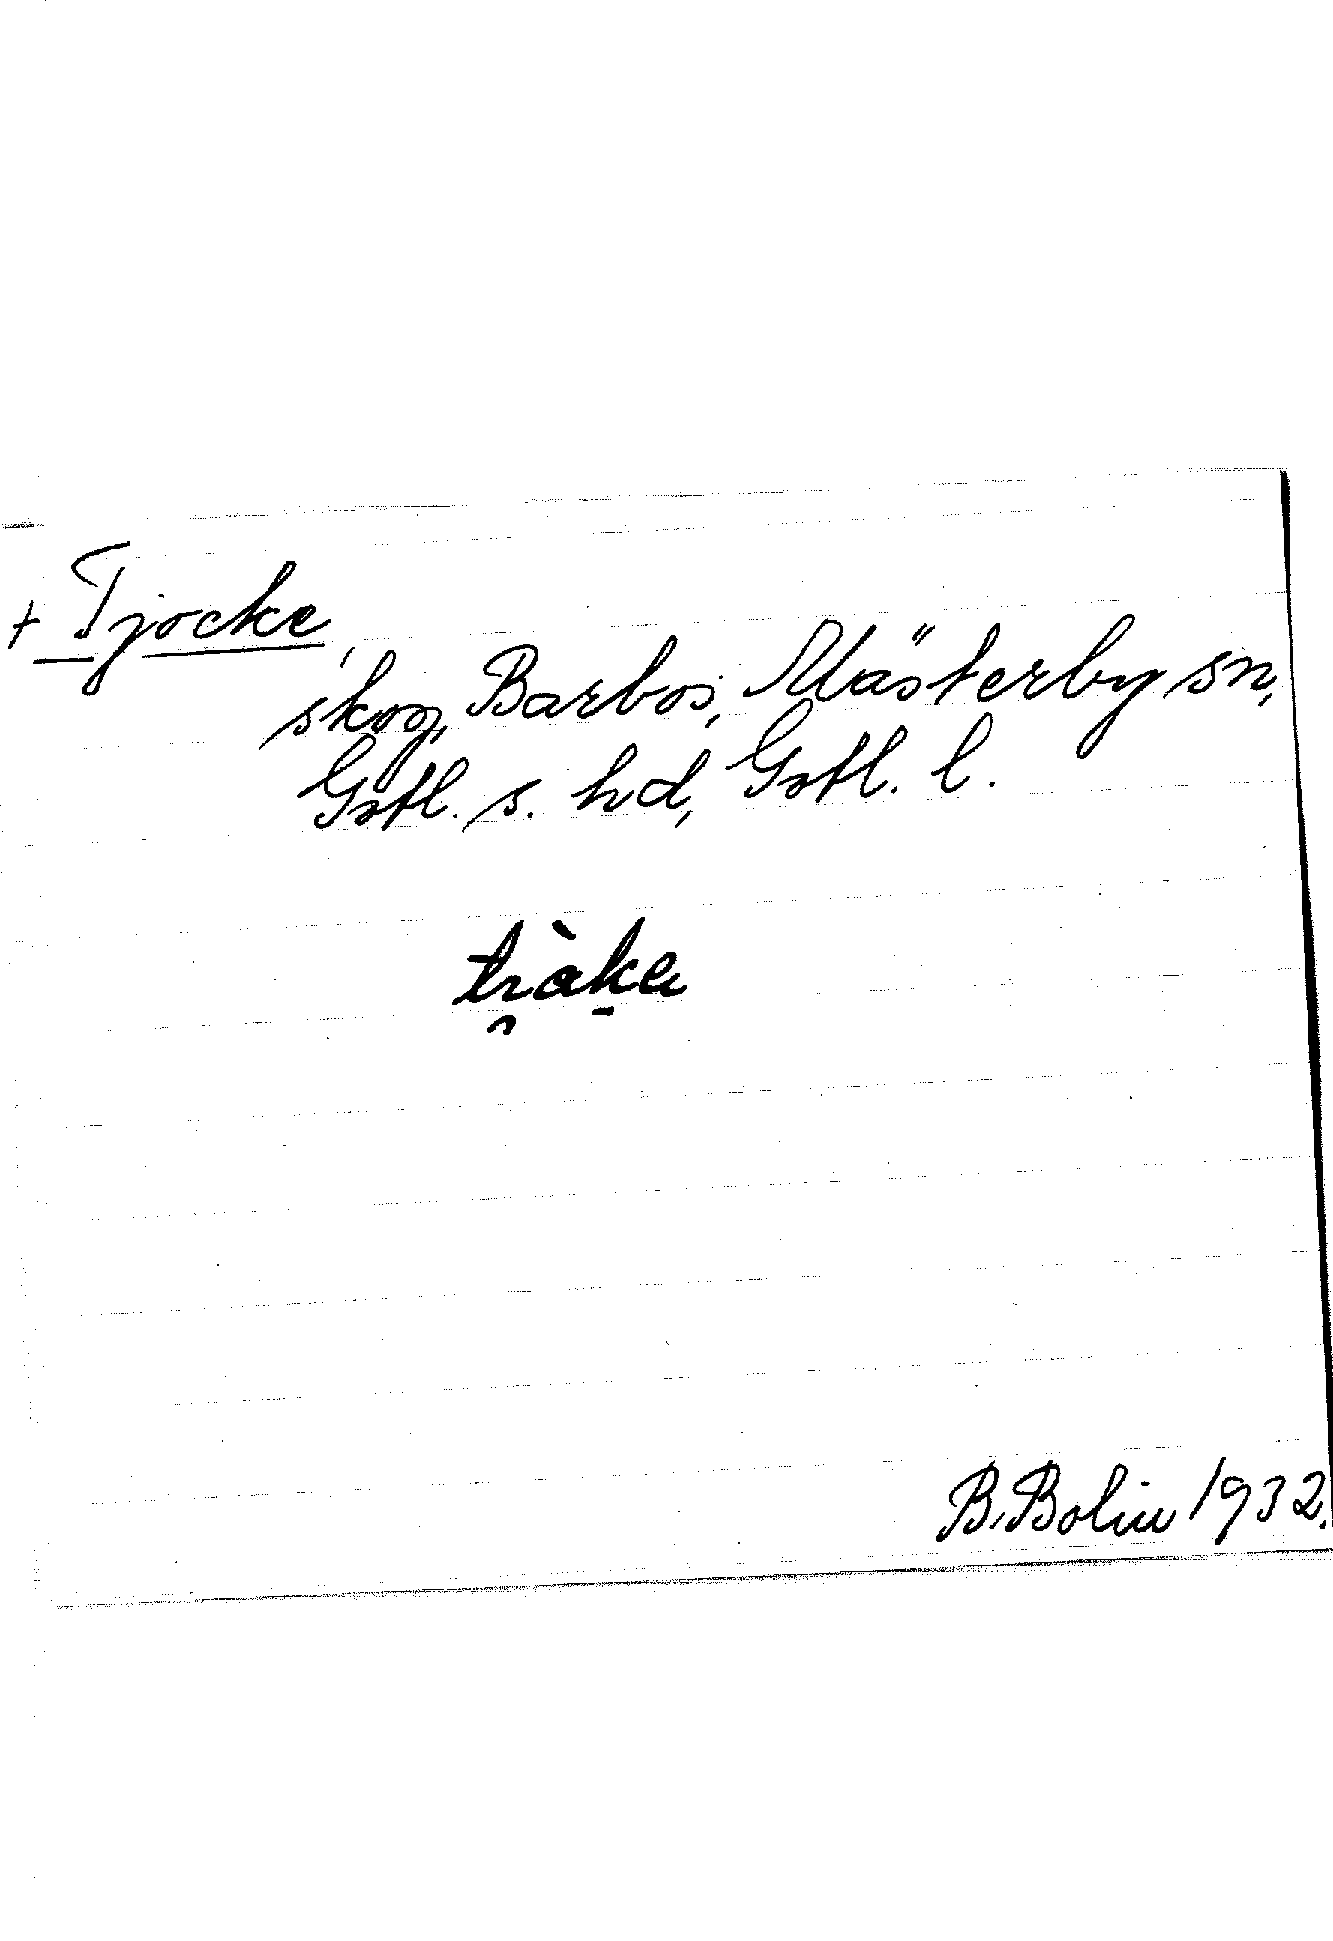 + Tjocke,
skog, Barbos, Mästerby sn,
Gotl. s. hd, Gotl. l.
B. Bolin 1932.